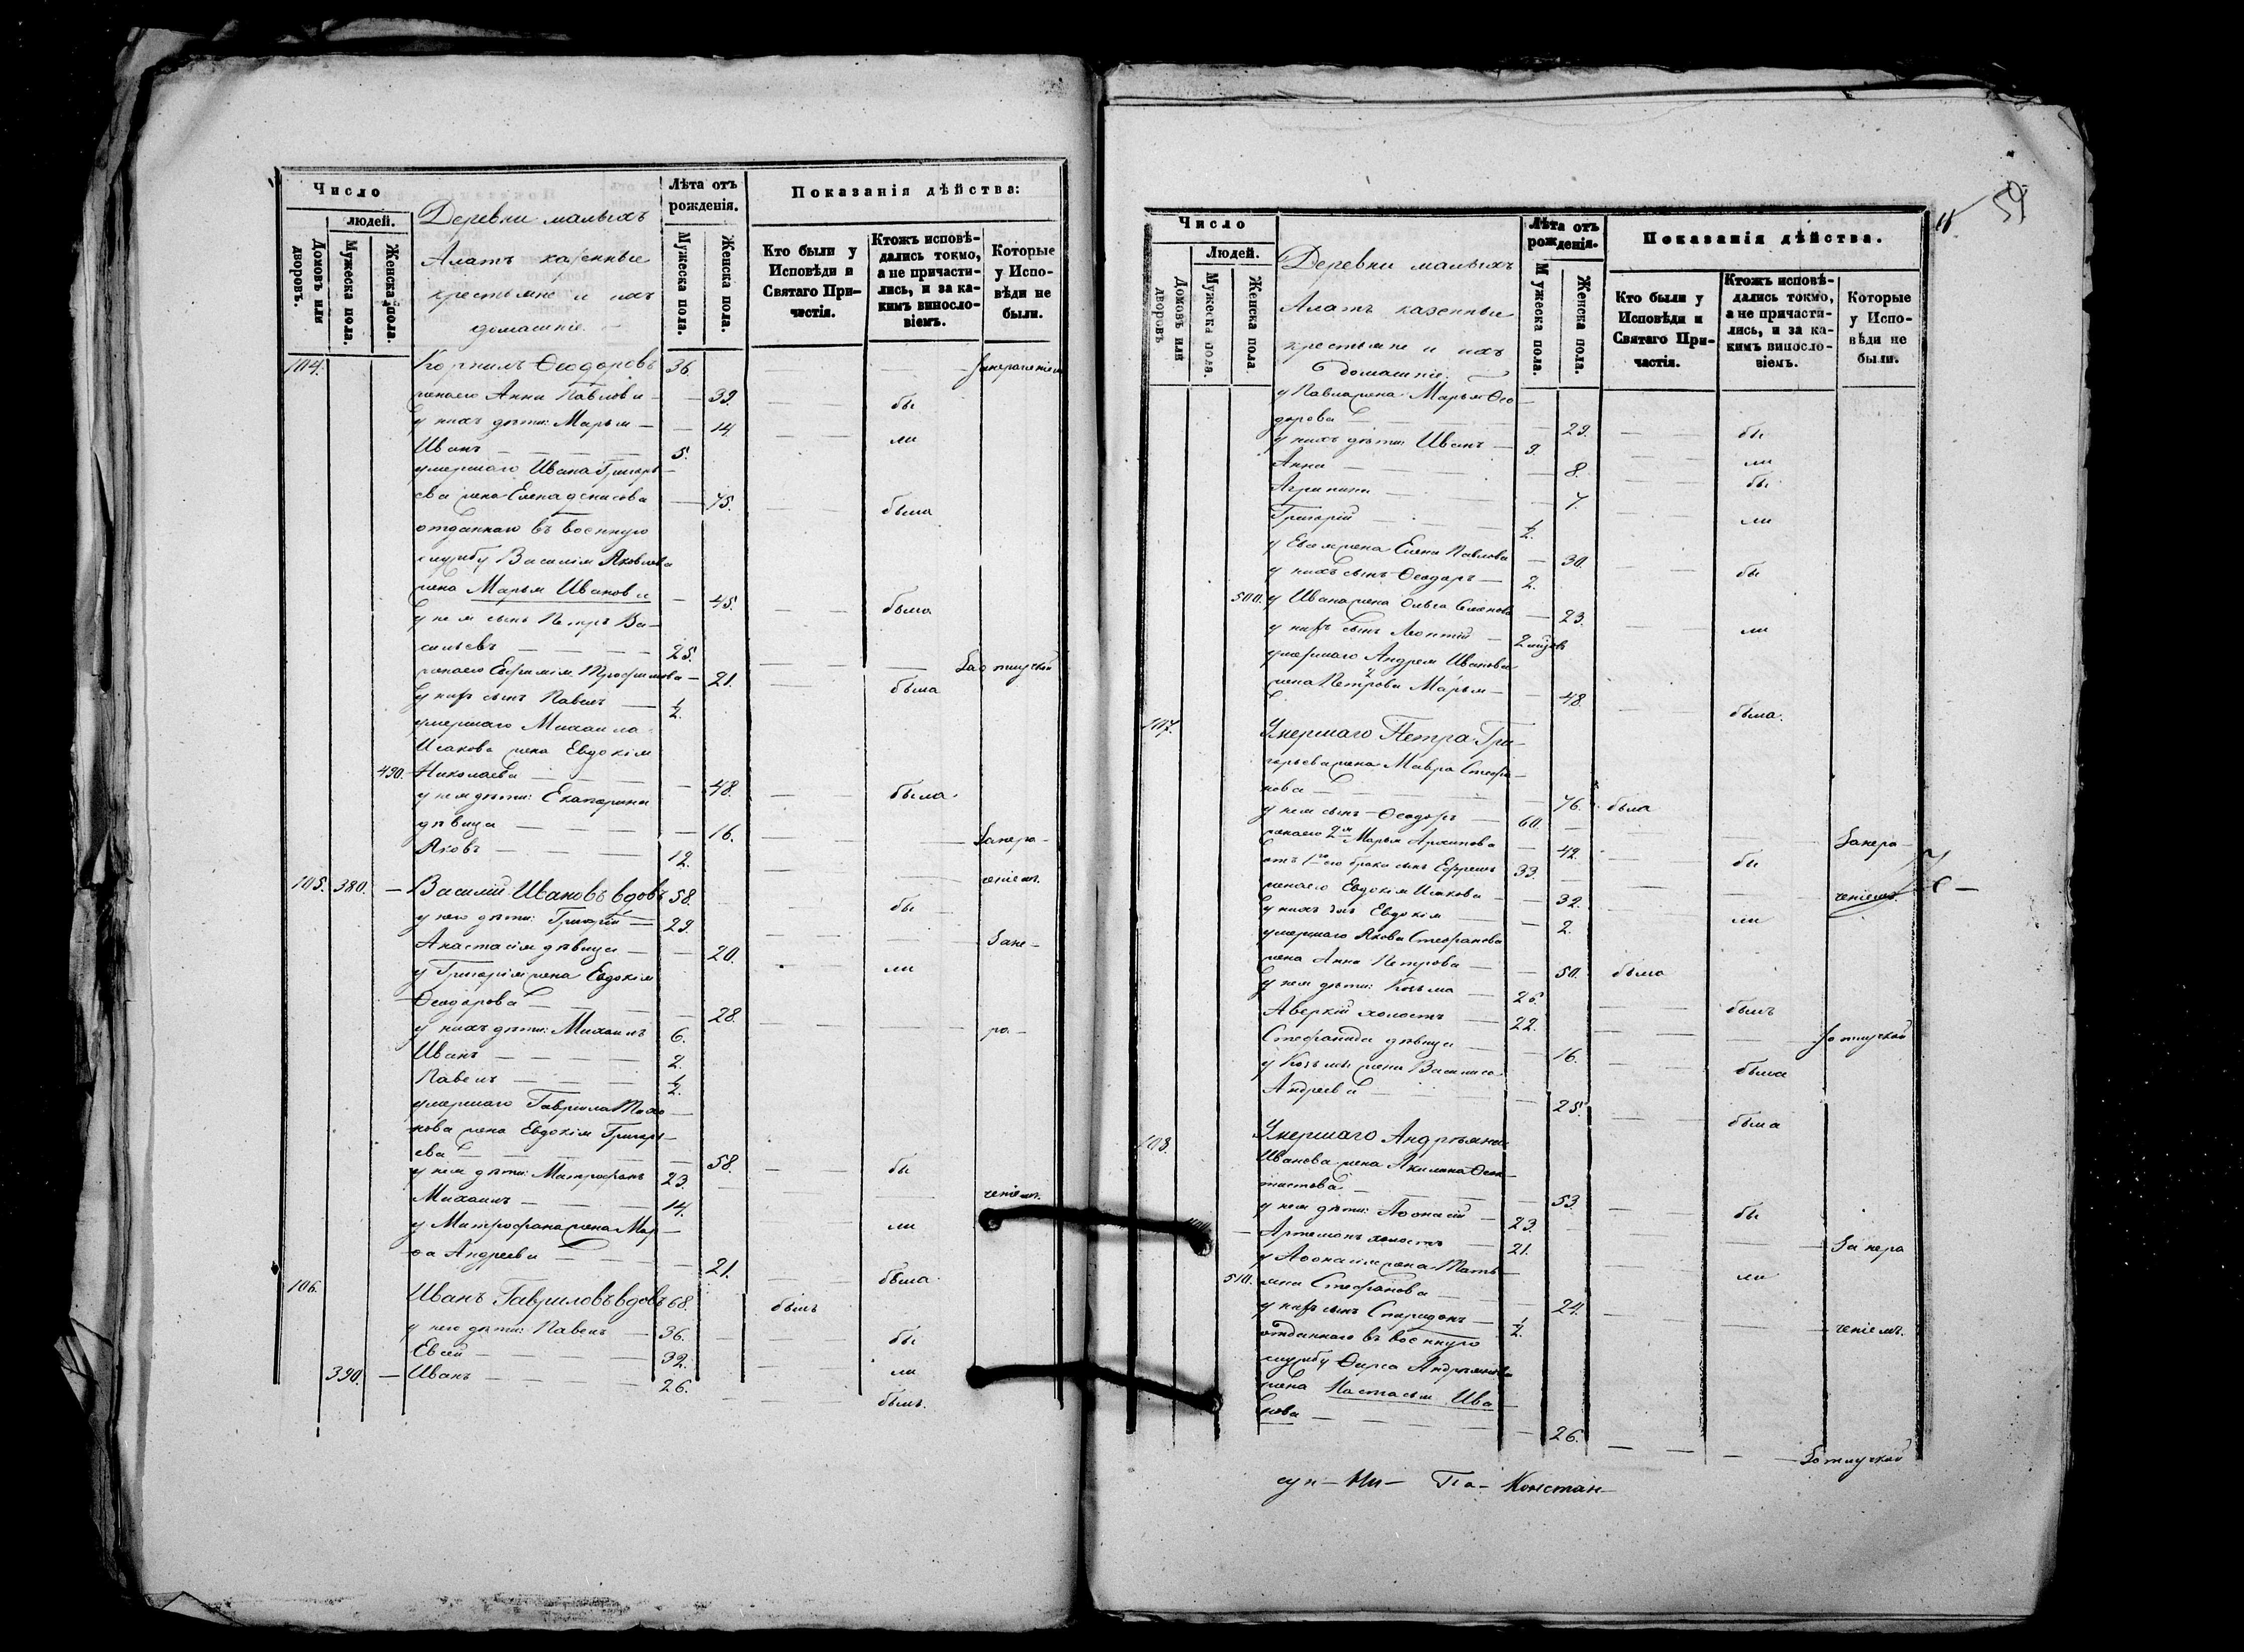 Число
людей.
Домовъ или дворовъ.
Мужеска пола.
Женска пола.
Деревни малыхъ
Алатъ казенные
крестьяне и ихъ
домашніе.
Лѣта отъ рожденія.
Мужеска пола.
Женска пола.
Показанія дѣйства:
Кто были у Исповѣди и Святаго Причастія.
Ктожъ исповѣдались токмо, а не причастились, и за какимъ винословіемъ.
Которые у Исповѣди не были.
104. Корнилъ Ѳеодоровъ 36. — — — за нераченіем
жена его Анна Павлова — — 39. — — бы
у нихъ дѣти: Марья — — 14. — — ли
Иванъ — — — 5.
умершаго Ивана Григорь-
ева жена Елена Денисова — 75. — — была
отданнаго въ военную
службу Василія Яковлева
жена Марья Иванова — 45. — — была
у нея сынъ Петръ Ва-
сильевъ — — — 25. — — за отлучкой
жена его Евфимія Трофимова — 21. — — была
у нихъ сынъ Павелъ — 1/2.
умершаго Михаила
Исакова жена Евдокія
490. Николаева — — — 48. — — была.
у нея дѣти: Екатерина
дѣвица — — — — 16. — — — за нера-
Яковъ — — — 12. — — — ченіем.
105. 380. — Василій Ивановъ вдовъ 58. — — бы
у него дѣти: Григорій — 29. — — — за не-
Анастасія дѣвица — — 20. — — ли
у Григорія жена Евдокія
Ѳеодорова — — — 28. — — — ра-
у нихъ дѣти: Михаилъ 6.
Иванъ — — — 2.
Павелъ — — — 1/2.
умершаго Гавріила Тихо-
нова жена Евдокія Григорь-
ева — — — 58. — — бы
у нея дѣти: Митрофанъ 23. — — — ченіем.
Михаилъ — — 14. — — ли
у Митрофана жена Мар-
ѳа Андреева — — 21. — — была.
106. Иванъ Гавриловъ вдовъ 68. — былъ
у него дѣти: Павелъ — 36. — — бы
Евсей — — — 32. — — ли
390. — Иванъ — — — 26. — — былъ.
59
Число
Людей.
Домовъ или дворовъ
Мужеска пола.
Женска пола
Деревни малыхъ
Алатъ казенные
крестьяне и ихъ
домашніе.
Лѣта отъ рожденія.
Мужеска пола.
Женска пола.
Показанія дѣйства.
Кто были у Исповѣди и Святаго Причастія.
Ктожъ исповѣдались токмо, а не причастились, и за какимъ винословіемъ.
Которые у Исповѣди не были.
у Павла жена Марья Ѳео-
дорова — — — 29. — — бы
у нихъ дѣти: Иванъ — 9. — — ли
Анна — — — 8. — — бы
Агрипина — — — 7. — — ли
Григорій — — 1/2.
у Евсея жена Елена Павлова — 30. — — бы
у нихъ сынъ Ѳеодоръ — 2.
500. у Ивана жена Ольга Семенова — 23. — — ли
у нихъ сынъ Леонтій — 2 мѣсяц
умершаго Андрея Иванова
жена Петрова Марья — — 48. — — была.
107. Умершаго Петра Гри-
горьева жена Мавра Стефа-
нова — — — 76. была
у нея сынъ Ѳеодоръ — 60. — — — за нера-
жена его 2я Марья Архипова — 42. — — бы
отъ 1го его брака сынъ Ефремъ 33. — — — ченіемъ.
жена его Евдокія Исакова — 32. — — ли
у нихъ дочь Евдокія — — 2.
умершаго Якова Стефанова
жена Анна Петрова — — 50. была
у нея дѣти: Козьма — 26. — — былъ
Аверкій холостъ — 22. — — — за отлучкой
Стефанида дѣвица — — 16. — — была
у Козьмы жена Василиса
Андреева — — — 25. — — была
108. Умершаго Андреяна
Иванова жена Акилина Ѳеок-
тистова — — — 53. — — бы
у нея дѣти: Аѳонасій — 23. — — — за нера
— Артемонъ холостъ — 21. — — ли
у Аѳонасія жена Тать-
510. яна Стефанова — — 24. — — — ченіемъ.
у нихъ сынъ Спиридонъ — 1/2.
отданнаго въ военную
службу Ѳирса Андреянова
жена Настасья Ива-
нова — — — 26. — — — за отлучкой
— Ни — Па — Констан —